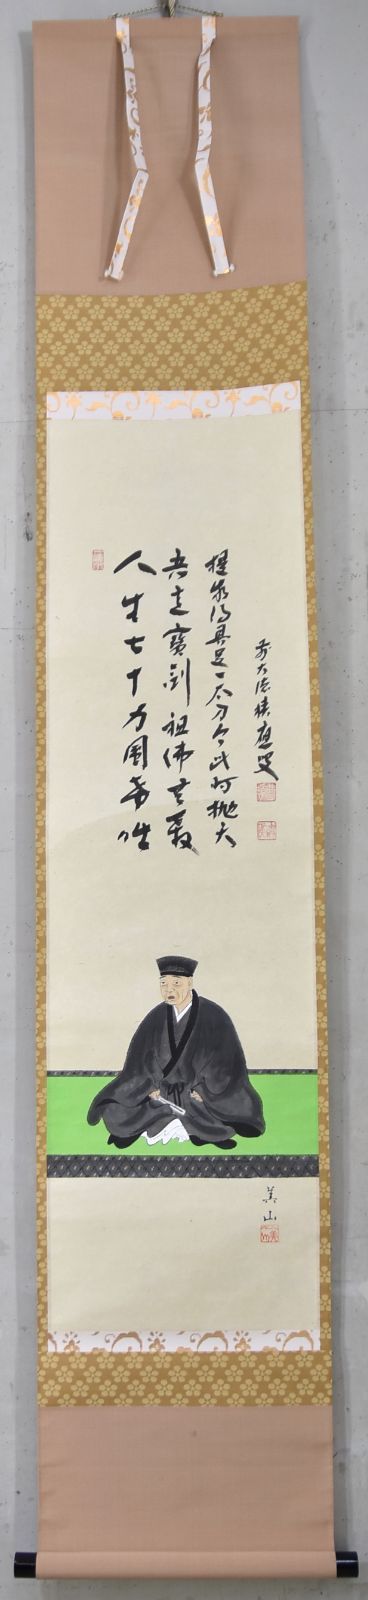 人生七十力圍希咄
吾這寶剣祖佛共殺
提我得具足一太刀今此时抛天
前大徳積應叟
美山